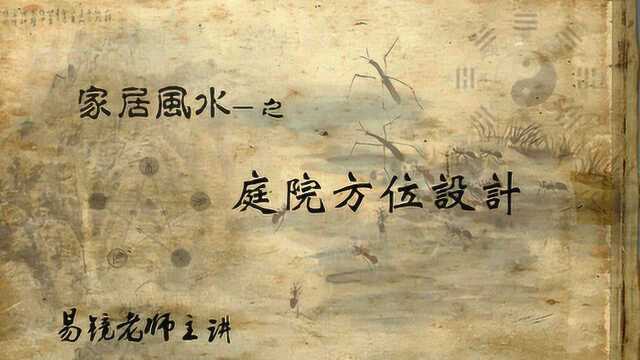 家居風水—之
庭院方位設計
易镜老师主讲